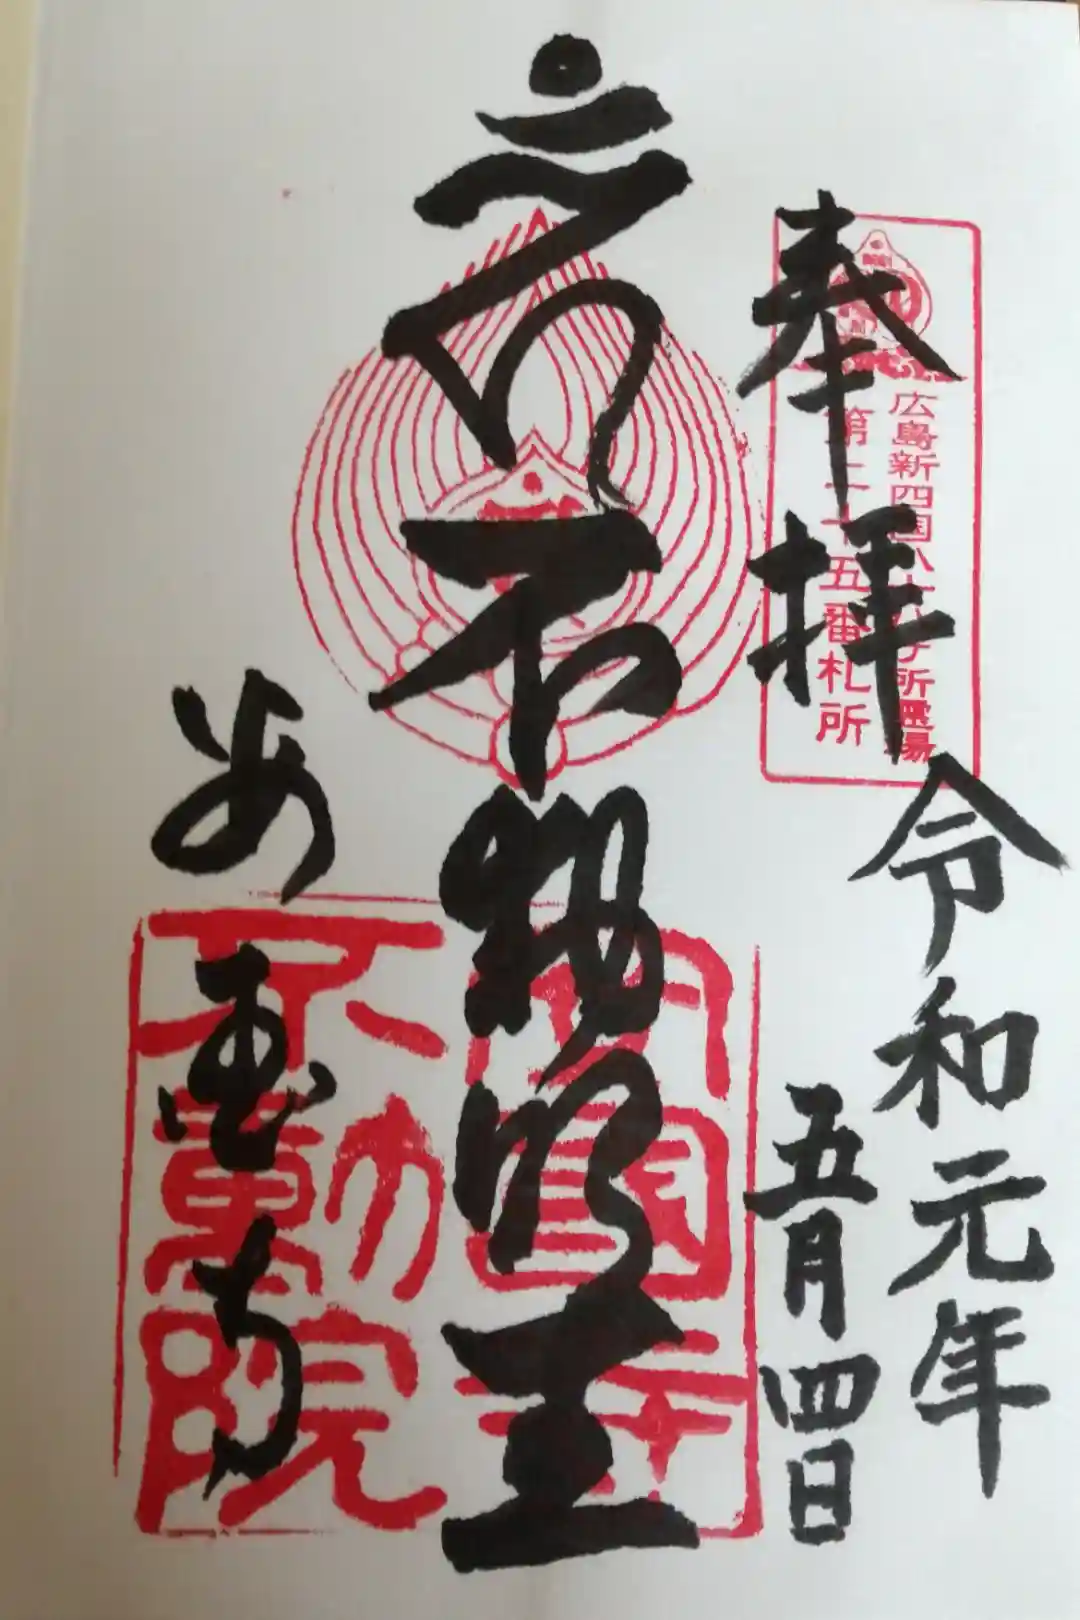 広島新四国八十八ケ所霊場
第二十五番札所
奉拝
令和元年
五月四日
不動明王
安国寺
安國寺
不動院